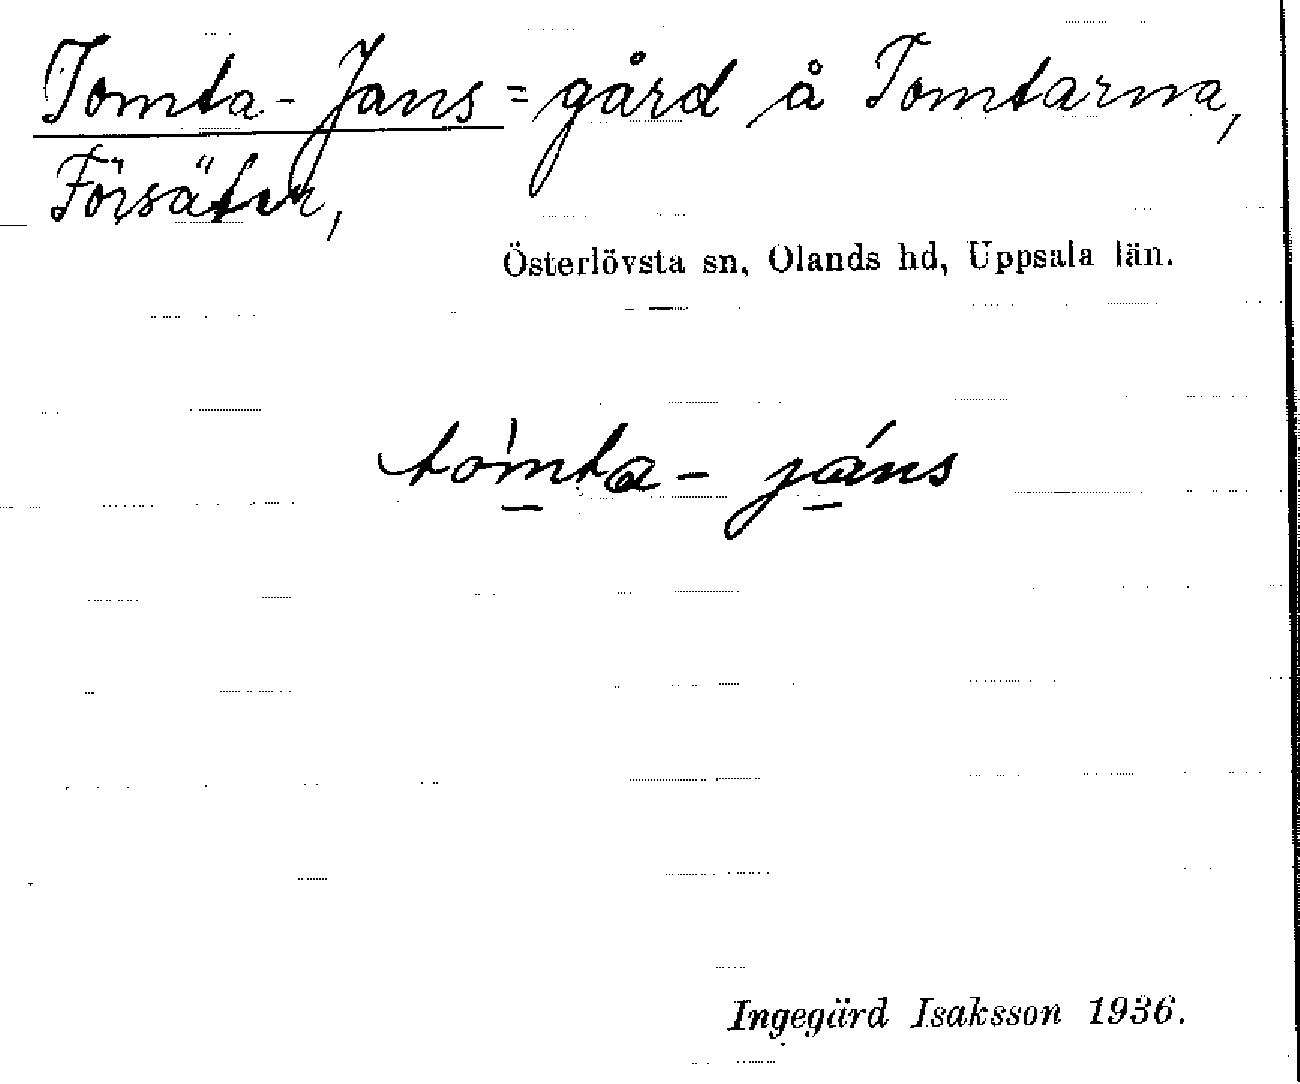 Tomta-Jans = gård å Tomtarna,
Försäter,
Österlövsta sn, Olands hd, Uppsala län.
tómta - jáns
Ingegärd Isaksson 1936.